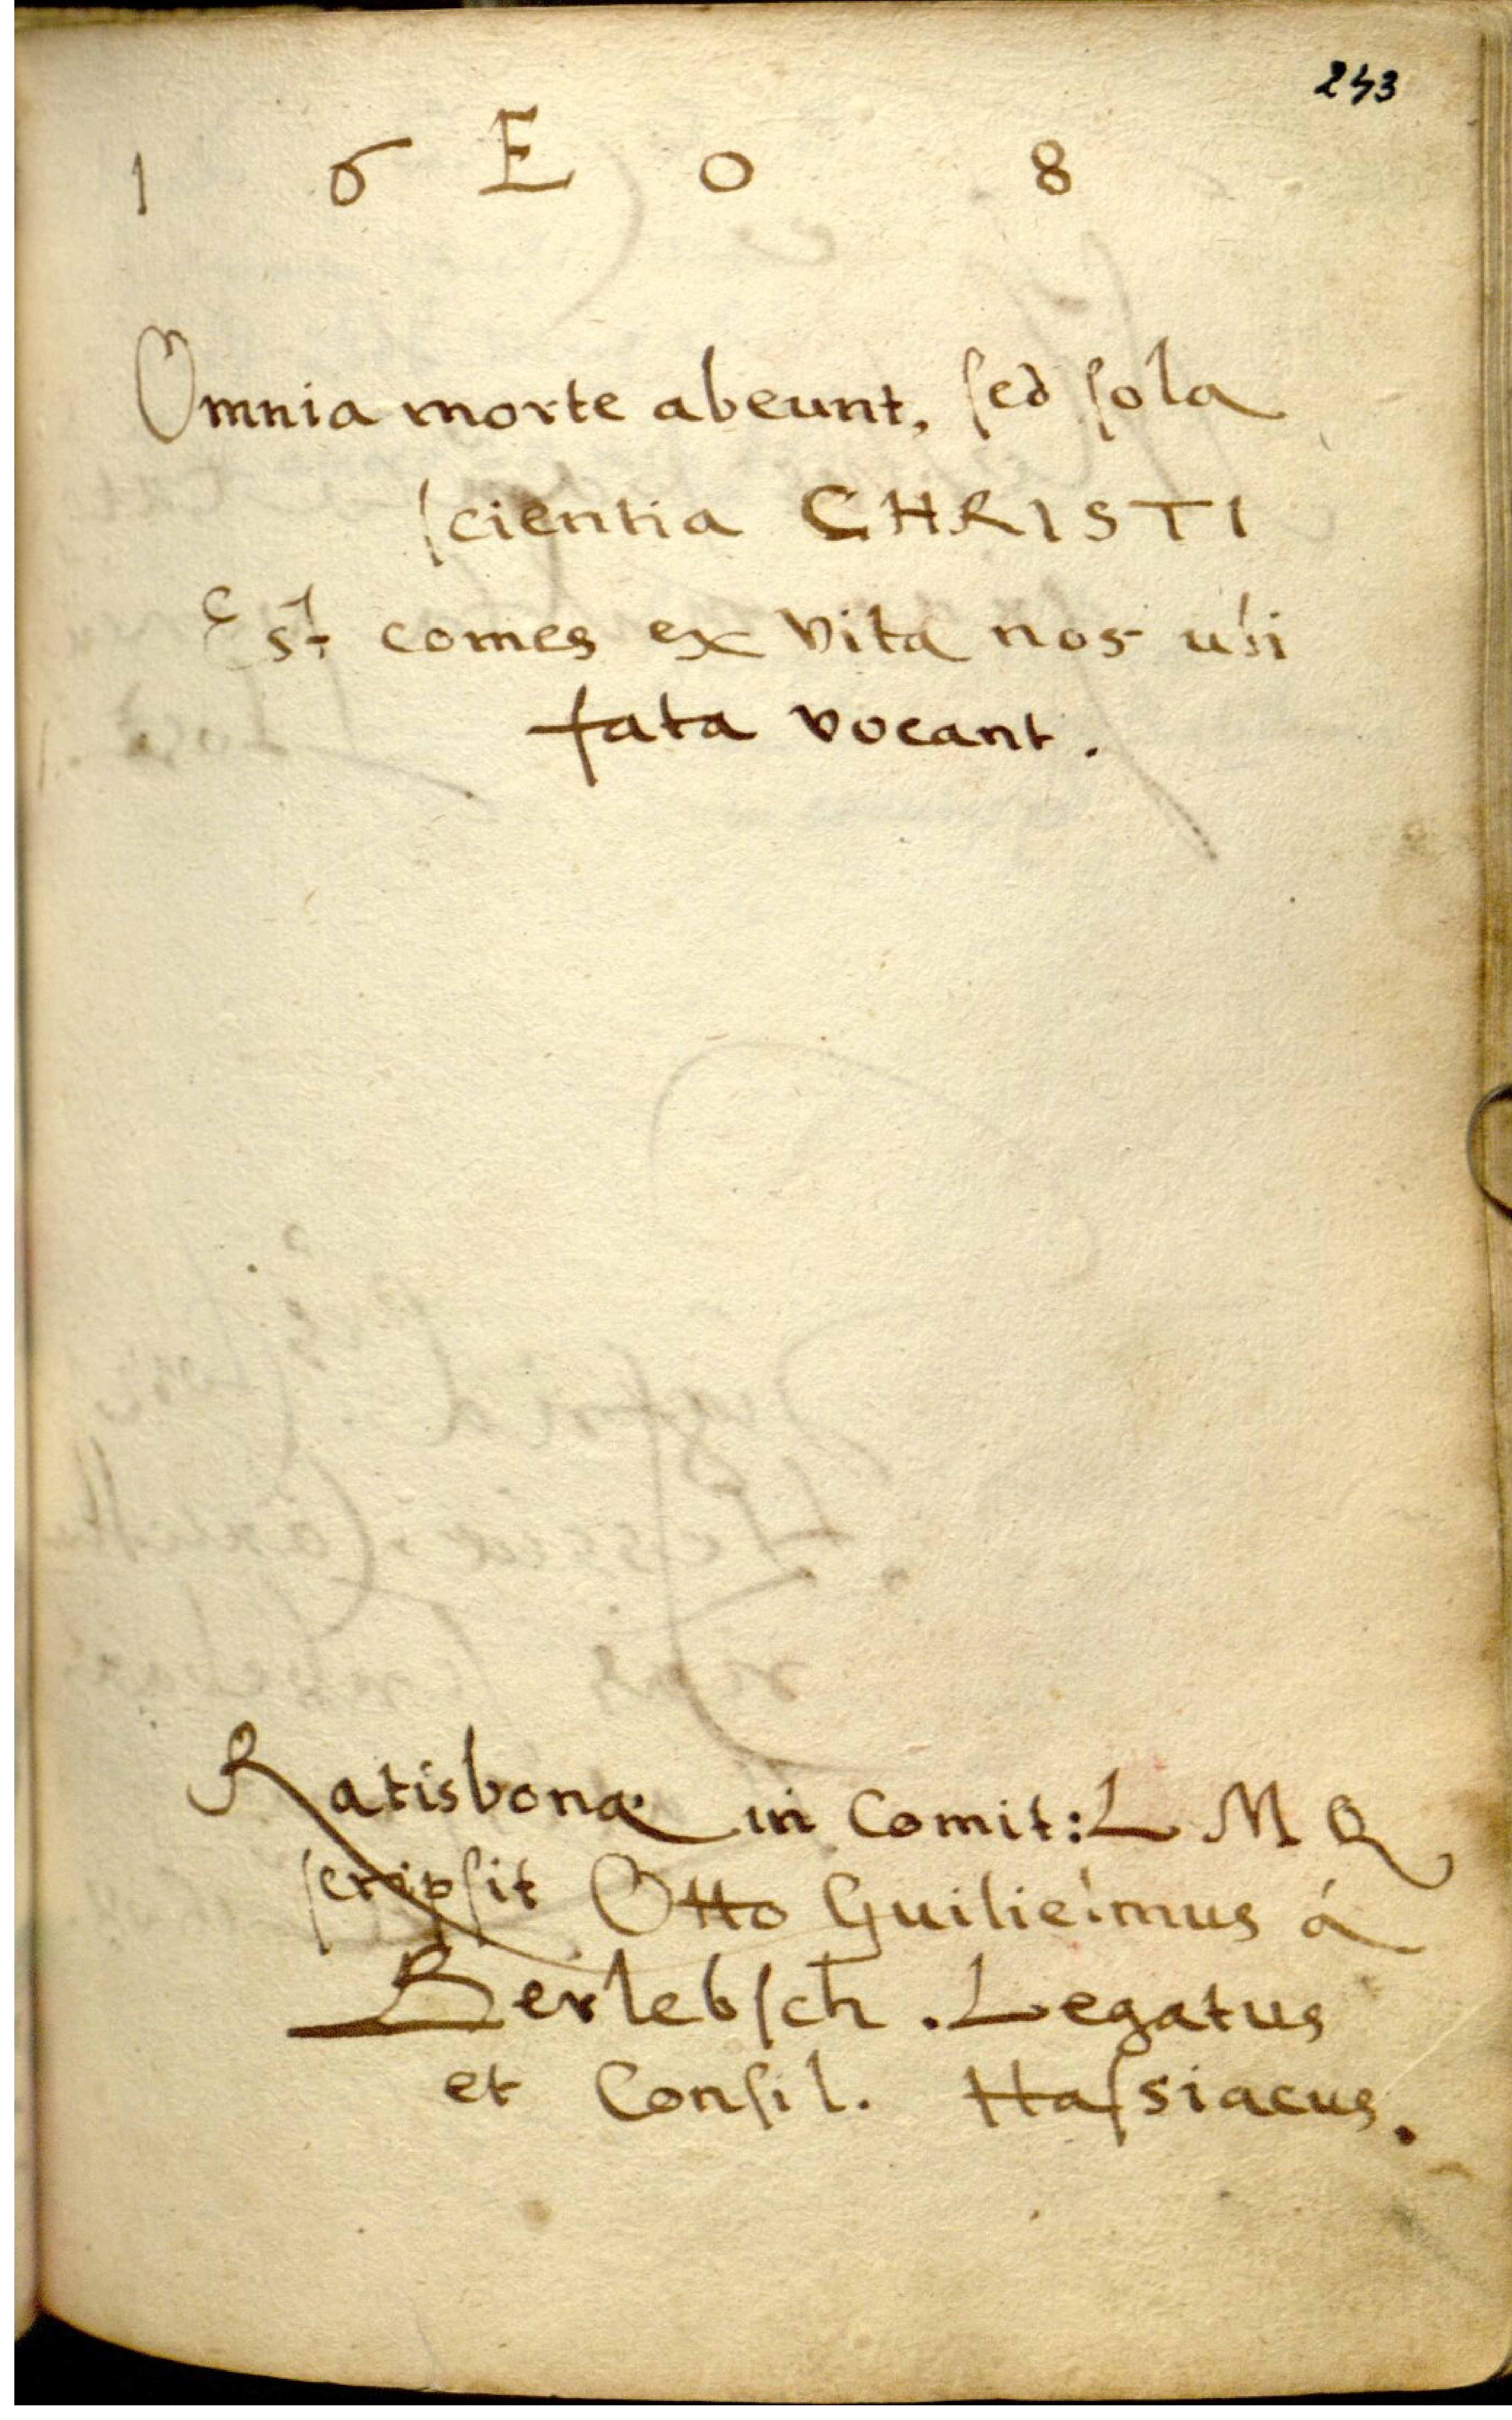 243
1 6 E 0 8
Omnia morte abeunt, ſed ſola
ſcientia CHRISTI
Est comes ex vita nos ubi
fata vocant.
Ratisbonæ in Comit: L M Q
ſcripſit Otto Guilielmus á
Berlebſch. Legatus
et Conſil. Haſsiacus.